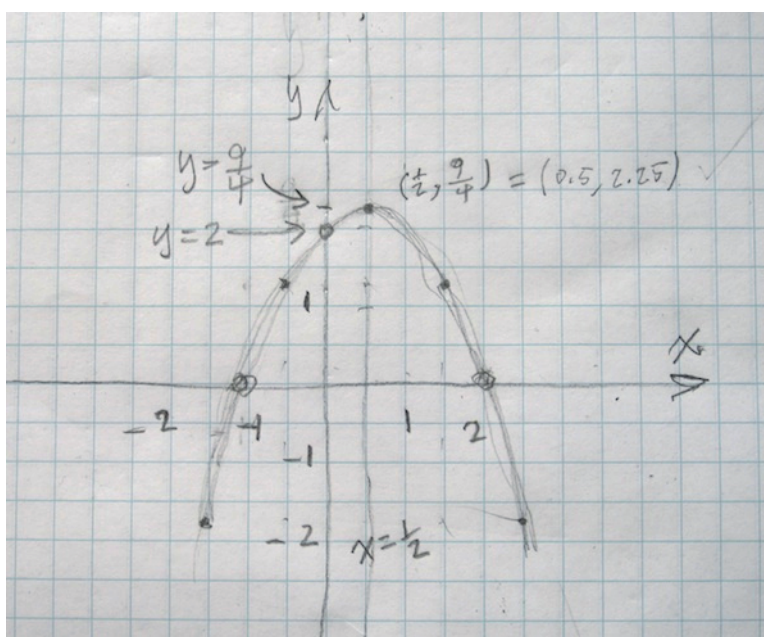 y
y = 9/4
(1/2, 9/4) = (0.5, 2.25)
y = 2
1
x
-2
-1
1
2
-1
-2
x = 1/2